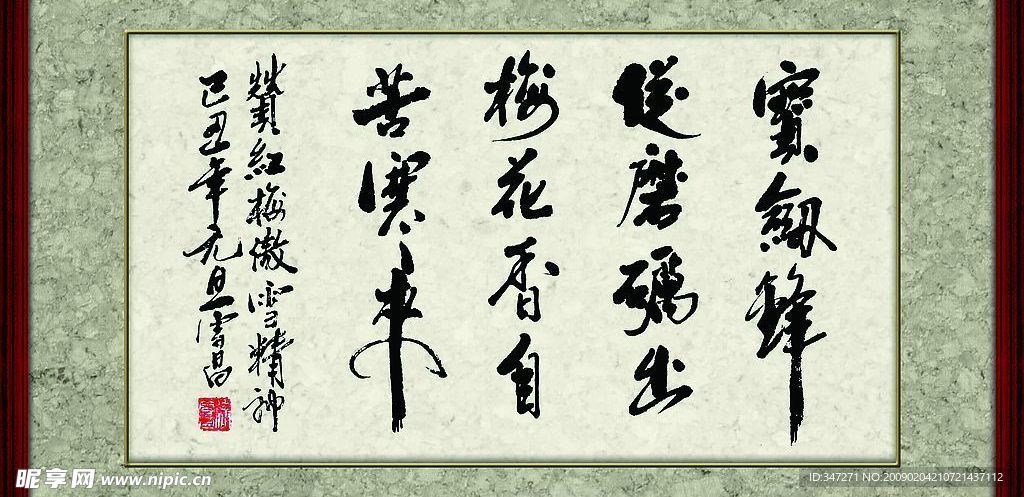 寶劔鋒
從磨礪出
梅花香自
苦寒来
贊紅梅傲雪精神
己丑年元旦雪昌
昵享网 www.nipic.cn
ID:347271 NO:20090204210721437112